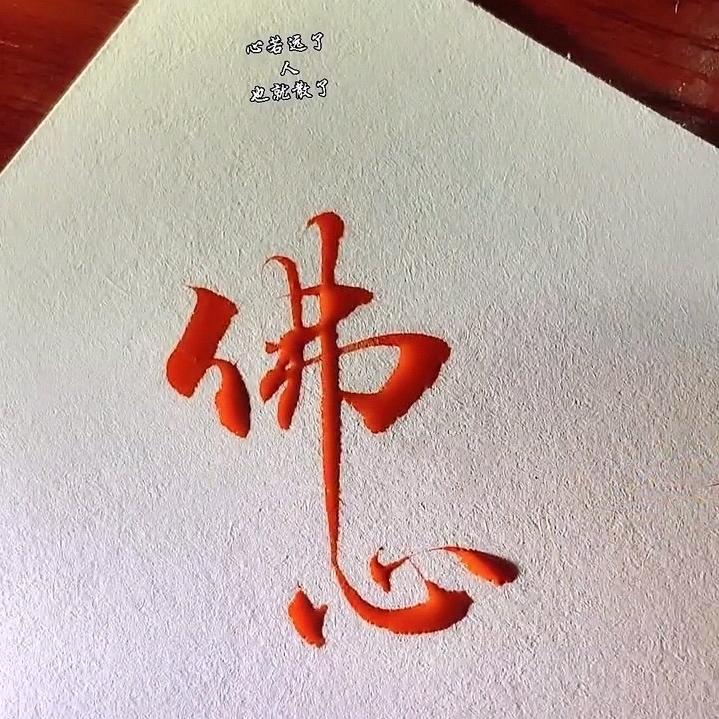 心若远了
人
也就散了
佛心